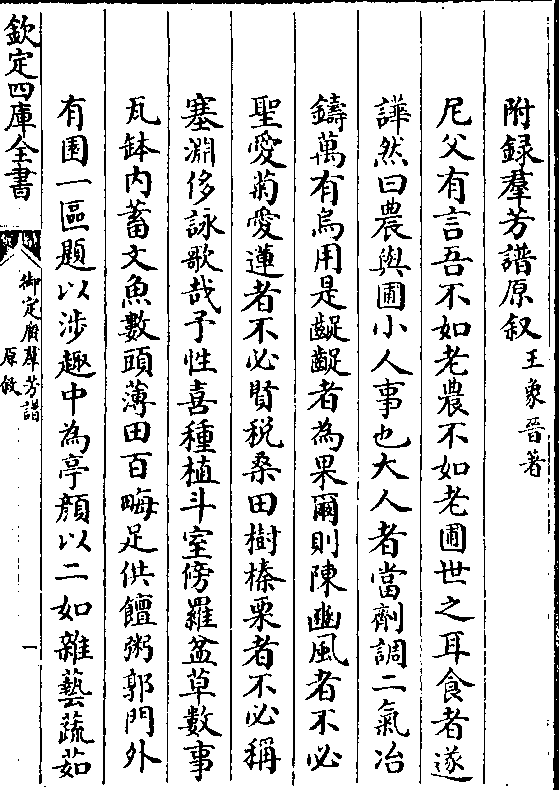 附録羣芳譜原叙 王象晉著
尼父有言吾不如老農不如老圃世之耳食者遂
譁然曰農與圃小人事也大人者當劑調二氣冶
鑄萬有烏用是齪齪者為果爾則陳豳風者不必
聖愛菊愛蓮者不必賢税桑田樹榛栗者不必稱
塞淵侈詠歌哉予性喜種植斗室傍羅盆草數事
瓦缽内蓄文魚數頭薄田百畮足供饘粥郭門外
有園一區題以涉趣中為亭顔以二如雜藝蔬茹
欽定四庫全書
御定廣羣芳譜
原敘
一